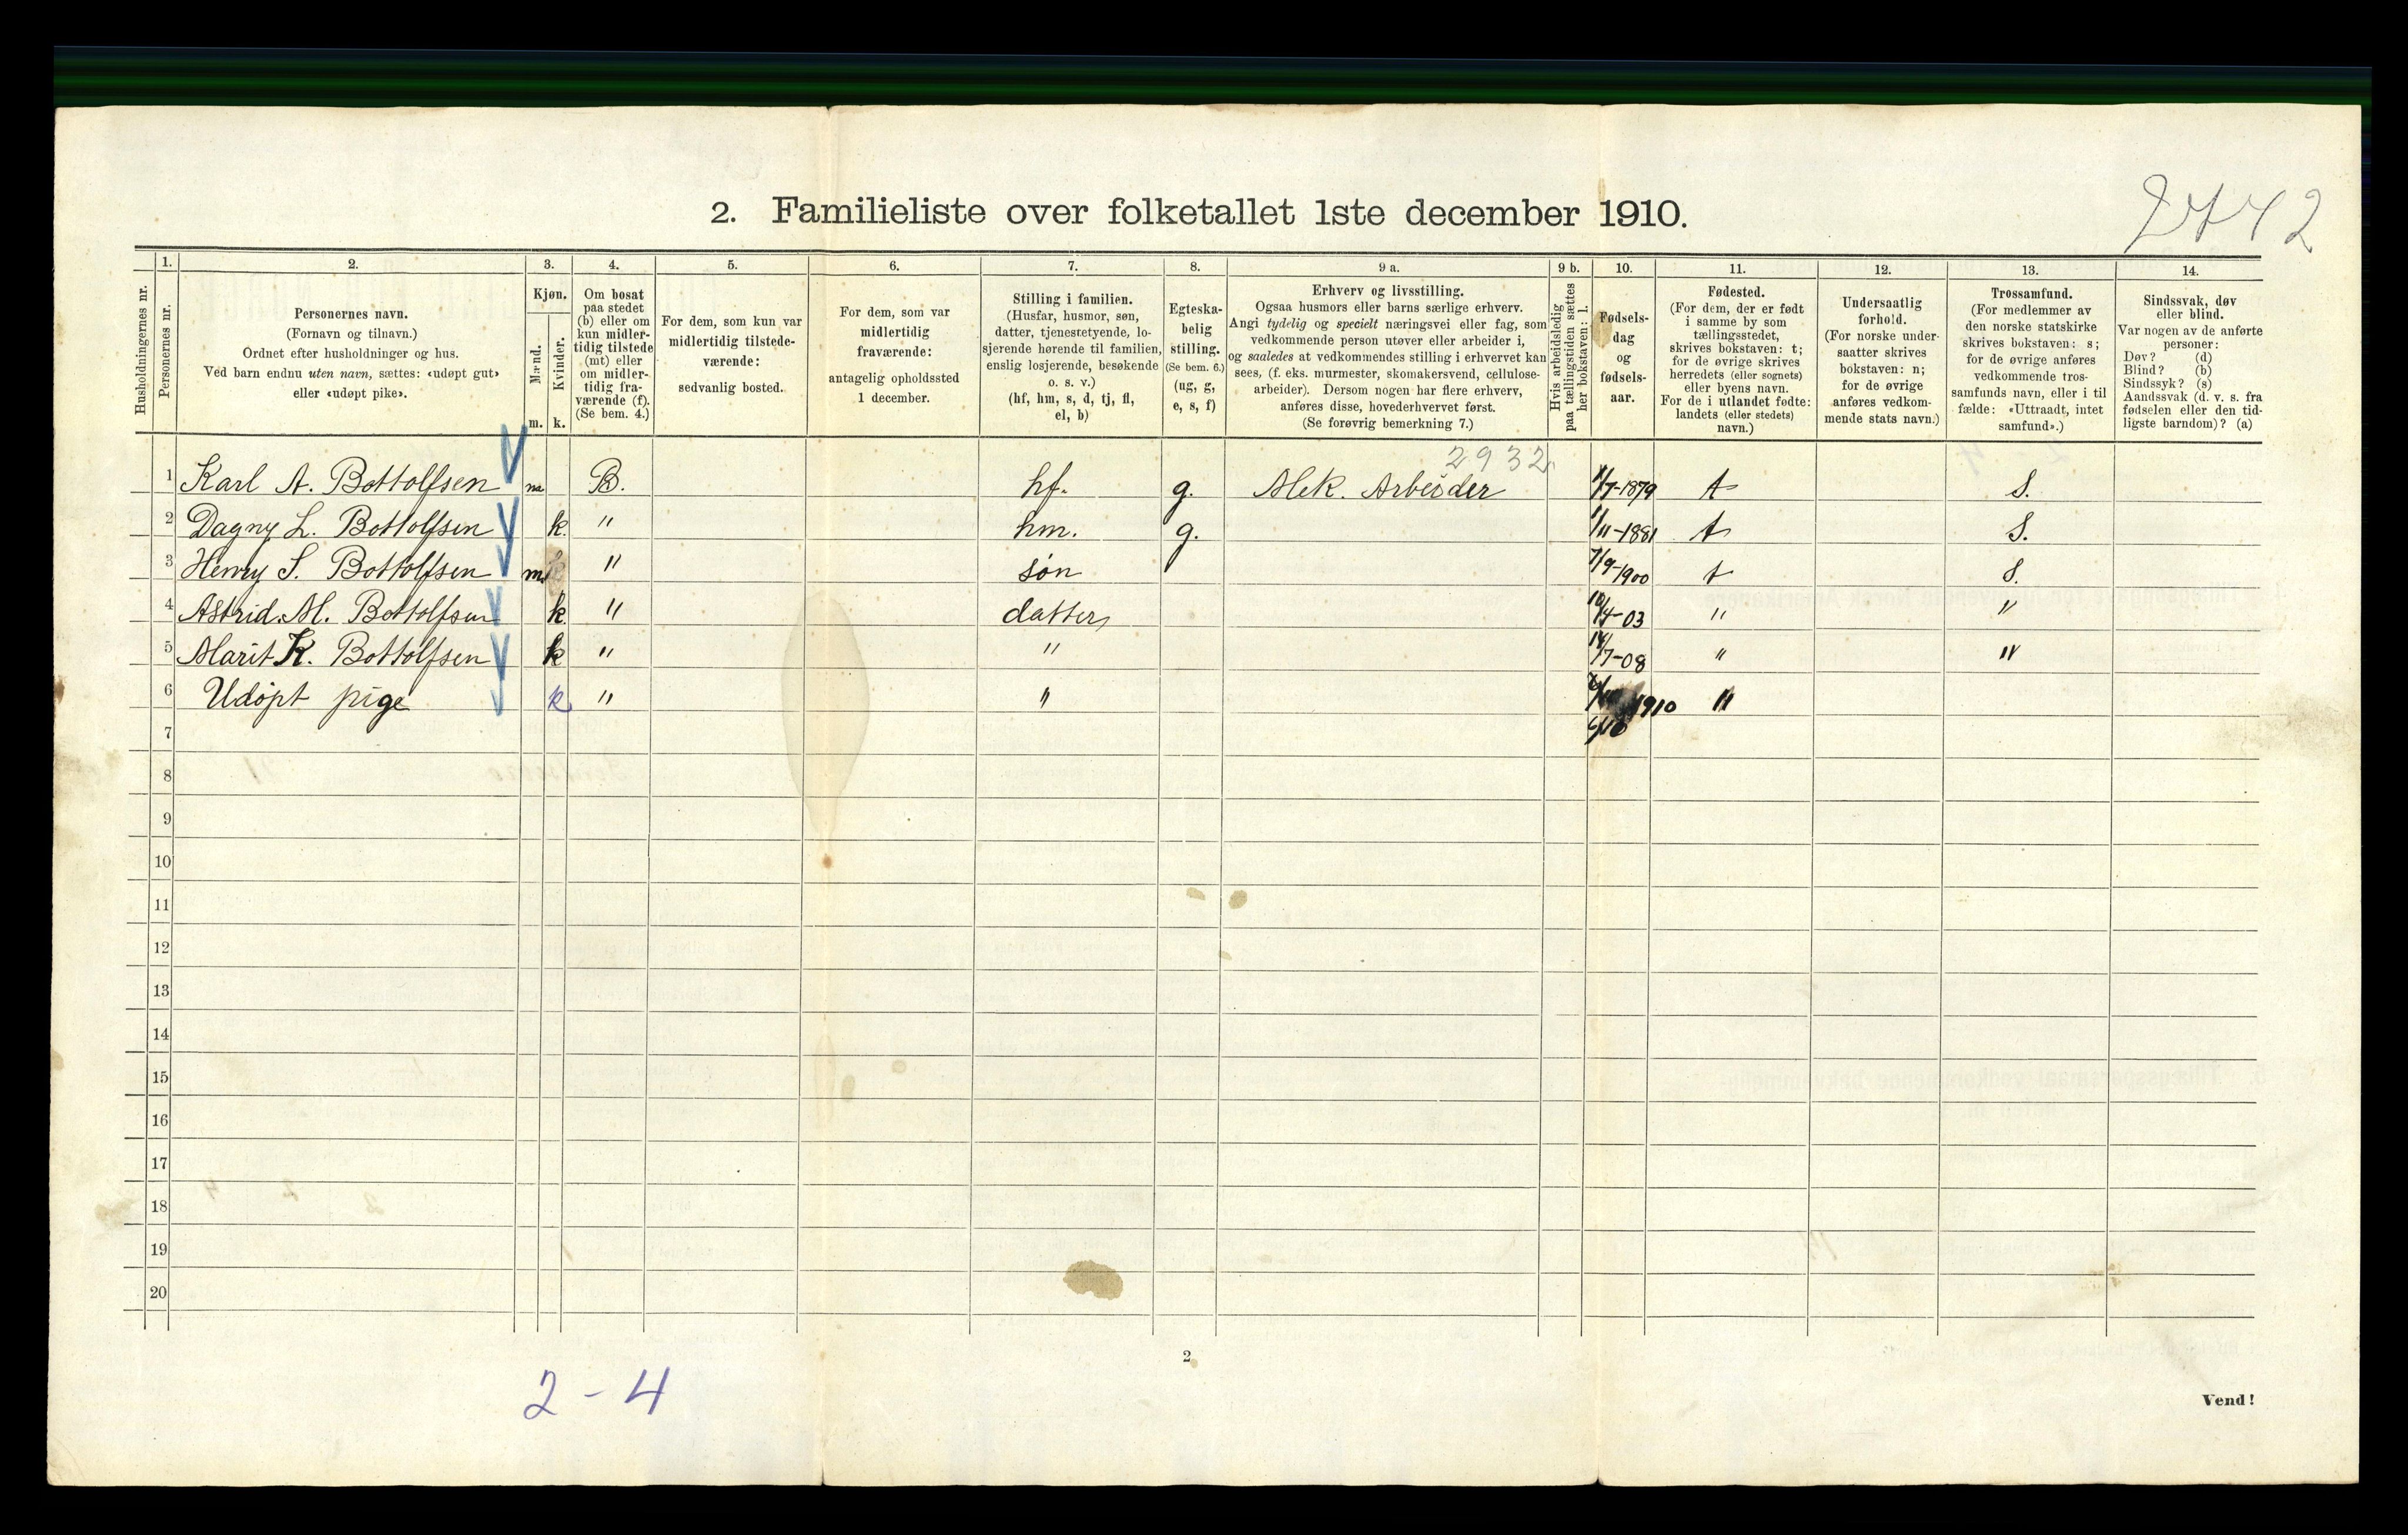 2. Familieliste over folketallet 1ste december 1910.
2442
Husholdningernes nr.
1. Personernes nr.
2. Personernes navn. (Fornavn og tilnavn.) Ordnet efter husholdninger og hus. Ved barn endnu uten navn, sættes: «udøpt gut» eller «udøpt pike».
3. Kjøn. Mænd. Kvinder. m. k.
4. Om bosat paa stedet (b) eller om kun midlertidig tilstede (mt) eller om midlertidig fraværende (f). (Se bem. 4.)
5. For dem, som kun var midlertidig tilstedeværende: sedvanlig bosted.
6. For dem, som var midlertidig fraværende: antagelig opholdssted 1 december.
7. Stilling i familien. (Husfar, husmor, søn, datter, tjenestetyende, losjerende hørende til familien, enslig losjerende, besøkende o. s. v.) (hf, hm, s, d, tj, fl, el, b)
8. Egteskabelig stilling. (Se bem. 6.) (ug, g, e, s, f)
9 a. Erhverv og livsstilling. Ogsaa husmors eller barns særlige erhverv. Angi tydelig og specielt næringsvei eller fag, som vedkommende person utøver eller arbeider i, og saaledes at vedkommendes stilling i erhvervet kan sees, (f. eks. murmester, skomakersvend, cellulosearbeider). Dersom nogen har flere erhverv, anføres disse, hovederhvervet først. (Se forøvrig bemerkning 7.)
9 b. Hvis arbeidsledig paa tællingstiden sættes her bokstaven: l.
10. Fødselsdag og fødselsaar.
11. Fødested. (For dem, der er født i samme by som tællingsstedet, skrives bokstaven: t; for de øvrige skrives herredets (eller sognets) eller byens navn. For de i utlandet fødte: landets (eller stedets) navn.)
12. Undersaatlig forhold. (For norske undersaatter skrives bokstaven: n; for de øvrige anføres vedkommende stats navn.)
13. Trossamfund. (For medlemmer av den norske statskirke skrives bokstaven: s; for de øvrige anføres vedkommende trossamfunds navn, eller i tilfælde: «Uttraadt, intet samfund».)
14. Sindssvak, døv eller blind. Var nogen av de anførte personer: Døv? (d) Blind? (b) Sindssyk? (s) Aandssvak (d. v. s. fra fødselen eller den tidligste barndom)? (a)
2932
1 Karl A. Bottolfsen m B. hf. g. Mek. Arbeider 1/7-1879 t S.
2 Dagny L. Bottolfsen k. " hm. g. 1/11-1881 t S.
3 Henry S. Bottolfsen m " søn 7/9-1900 t S.
4 Astrid. M. Bottolfsen k. " datter 10/4-03 " "
5 Marit K. Bottolfsen k " " 14/7-08 " "
6 Udøpt pige k " " 1910 "
7
8
9
10
11
12
13
14
15
16
17
18
19
20
2
2-4
Vend!